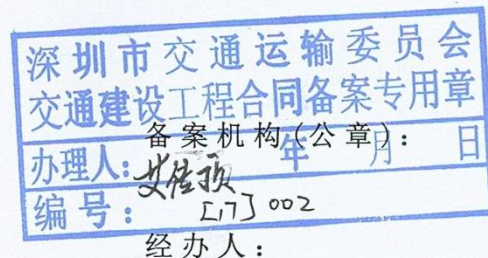 深圳市交通运输委员会
交通建设工程合同备案专用章
备案机构(公章):
办理人: 年 月 日
编号: [17] 002
经办人: